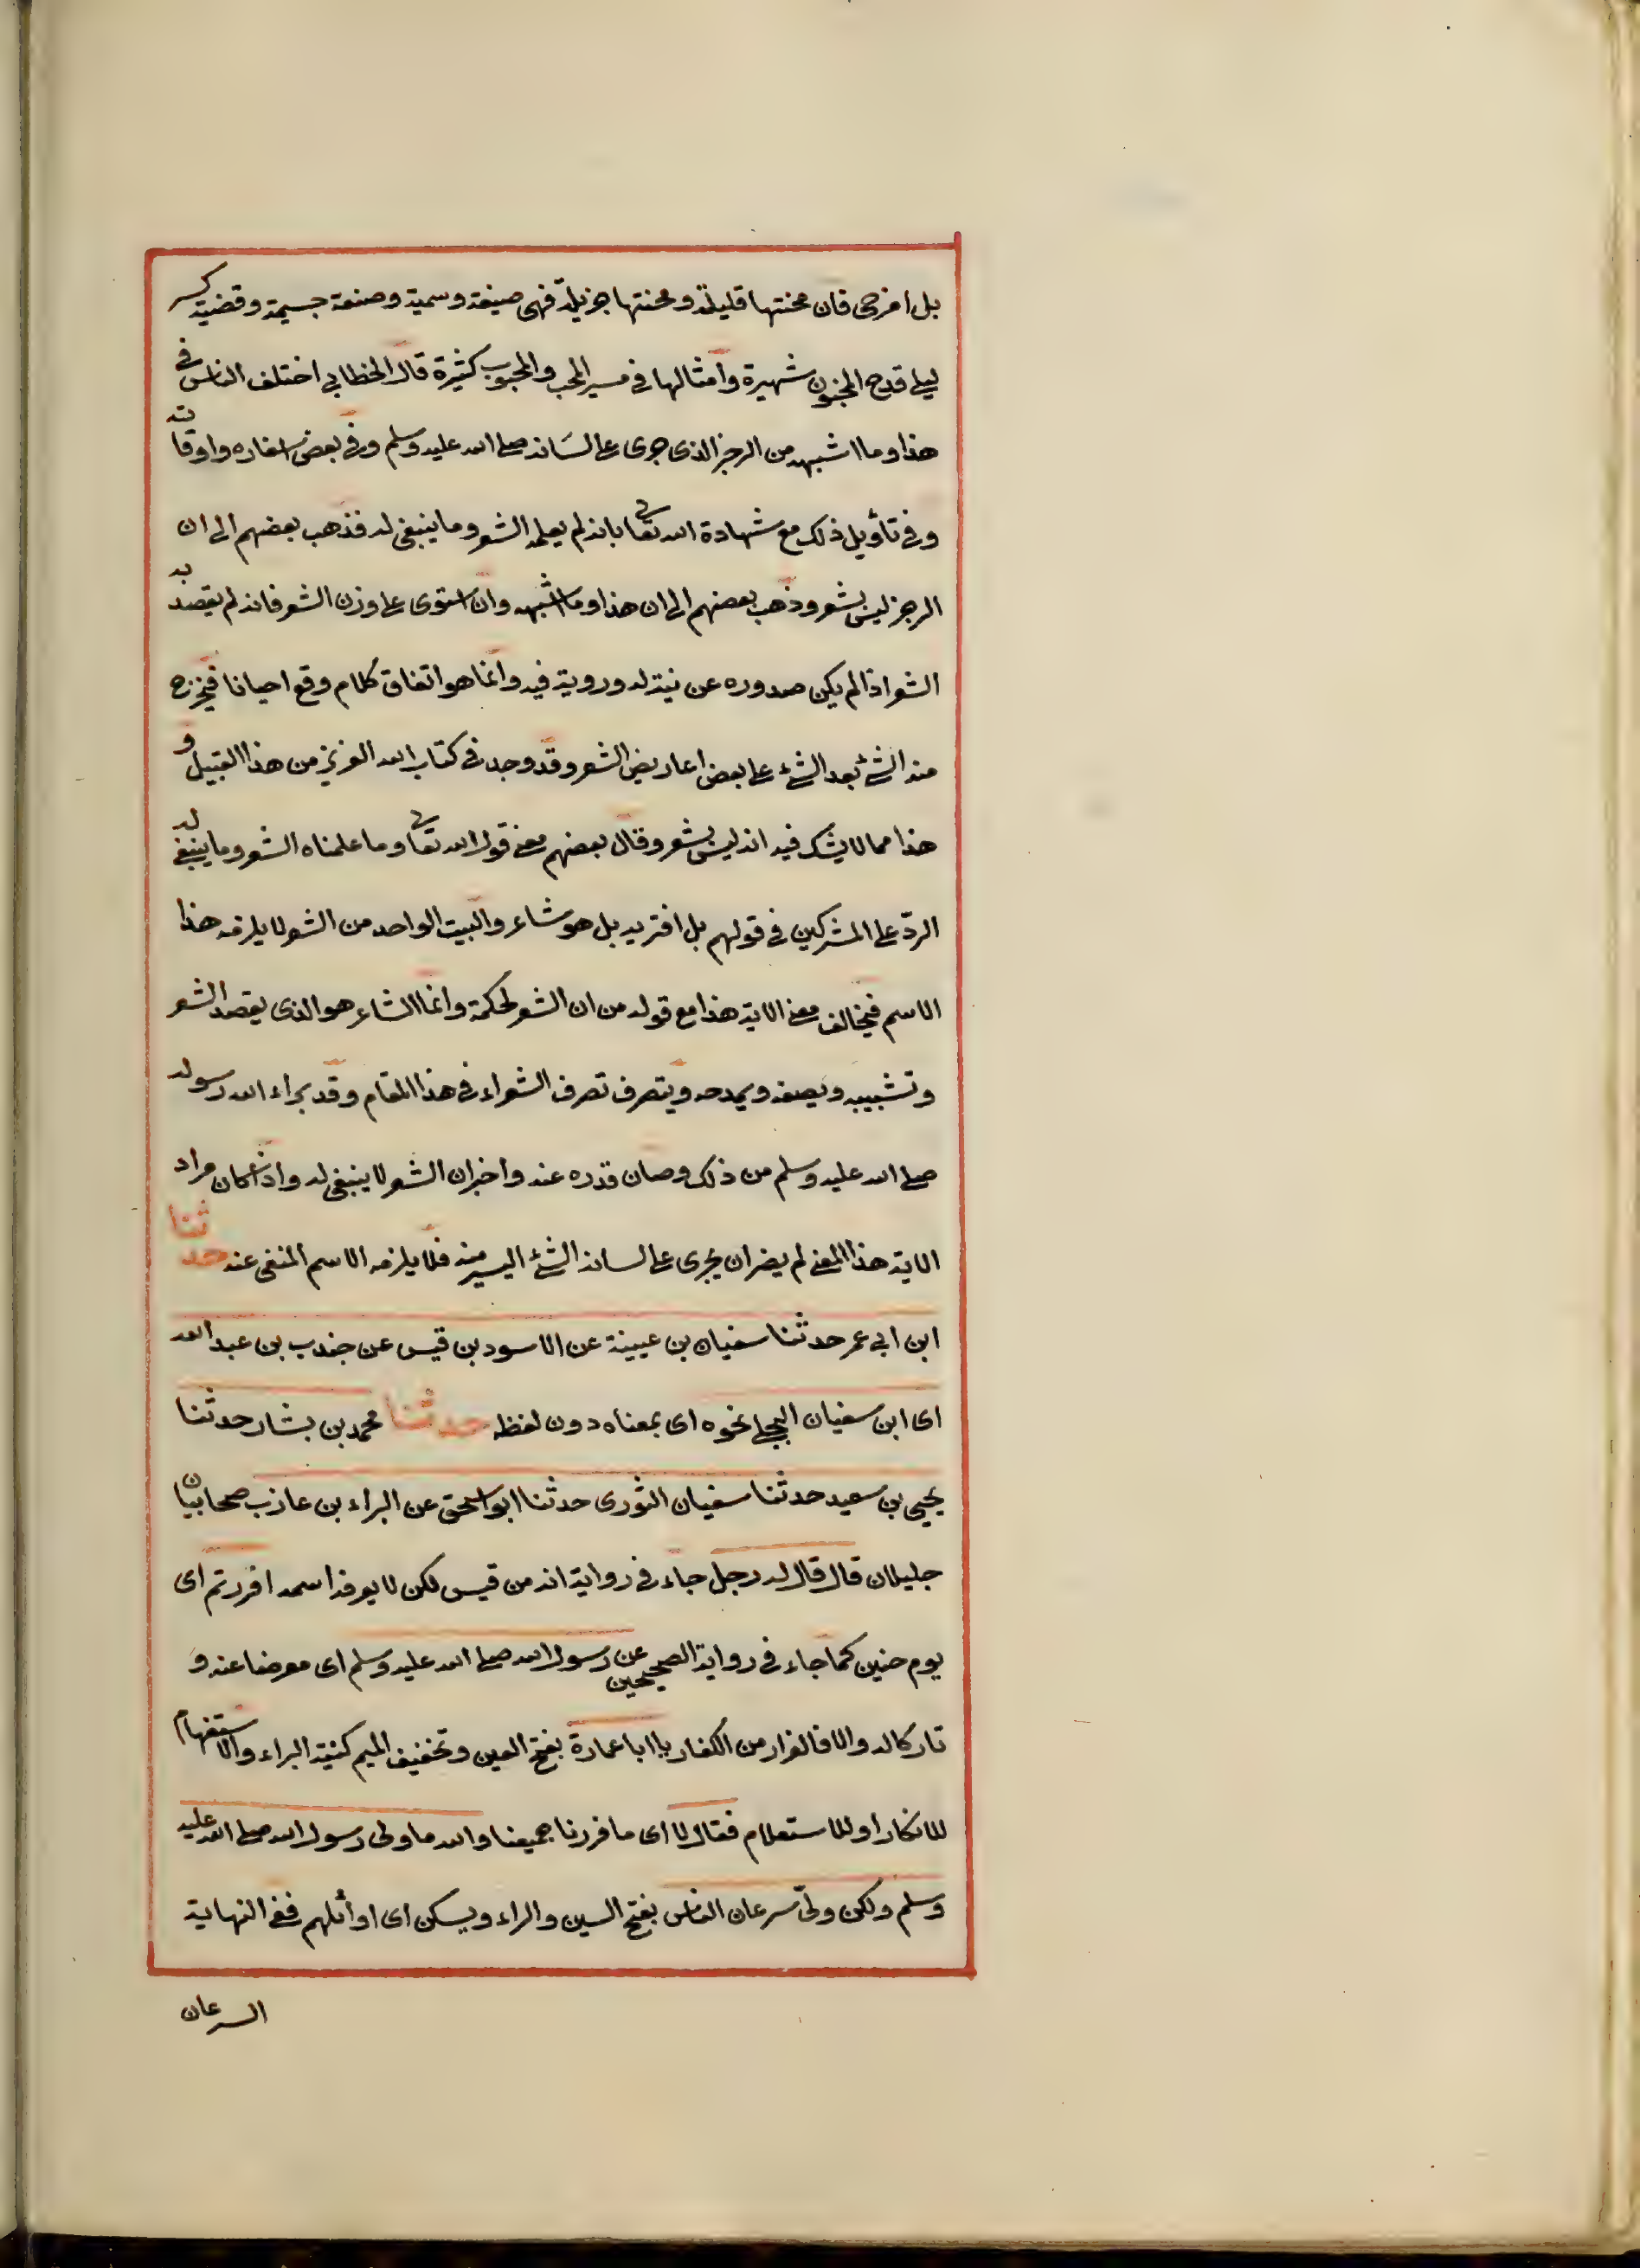 بل افرحى فان محنتها قليلة ومحنتها جزيلة فهى صيغة وسمية وصنعة جسيمة وقضية كسر
ليلى قدح المجنون شهيرة وامثالها فى سير المحب والمحبوب كثيرة قال الخطابى اختلف الناس فى
هذا وما اشبهه من الرجز الذى جرى على لسانه صلى الله عليه وسلم وفى بعض اسفاره واوقاته
وفى تأويل ذلك مع شهادة الله تعالى بانه لم يعلمه الشعر وما ينبغى له فذهب بعضهم الى ان
الرجز ليس بشعر وذهب بعضهم الى ان هذا وما اشبهه وان استوى على وزن الشعر فانه لم يقصد به
الشعر اذ لم يكن صدوره عن نية له وروية فيه وانما هو اتفاق كلام وقع احيانا فيخرج
منه الشئ بعد الشئ على بعض اعاريض الشعر وقد وجد فى كتاب الله العزيز من هذا القبيل و
هذا مما لا يشك فيه انه ليس بشعر وقال بعضهم معنى قول الله تعالى وما علمناه الشعر وما ينبغى له
الردّ على المشركين فى قولهم بل افتريه بل هو شاعر والبيت الواحد من الشعر لا يلزمه هذا
الاسم فيخالف معنى الاية هذا مع قوله من ان الشعر لحكمة وانما الشاعر هو الذى يقصد الشعر
وتشبيبه ويصفه ويمدحه ويتصرف تصرف الشعراء فى هذا المقام وقد براء الله رسوله
صلى الله عليه وسلم من ذلك وصان قدره عنه واخبر ان الشعر لا ينبغى له واذا كان مراد
الاية هذا المعنى لم يضر ان يجرى على لسانه الشئ اليسير منه فلا يلزمه الاسم المنفى عنه حدثنا
ابن ابى عمر حدثنا سفيان بن عيينة عن الاسود بن قيس عن جندب بن عبد الله
اى ابن سفيان البجلى نحوه اى بمعناه دون لفظه حدثنا محمد بن بشار حدثنا
يحيى بن سعيد حدثنا سفيان الثورى حدثنا ابو اسحق عن البراء بن عازب صحابيان
جليلان قال قال له رجل جاء فى رواية انه من قيس لكن لا يعرف اسمه افررتم اى
يوم حنين كما جاء فى رواية الصحيحين عن رسول الله صلى الله عليه وسلم اى معرضا عنه و
تاركا له والا فالفرار من الكفار يا ابا عمارة بفتح العين وتخفيف الميم كنية البراء والاستفهام
للانكار او للاستعلام فقال لا اى ما فررنا جميعنا والله ما ولى رسول الله صلى الله عليه
وسلم ولكن ولّى سرعان الناس بفتح السين والراء ويسكن اى اوائلهم ففى النهاية
السرعان